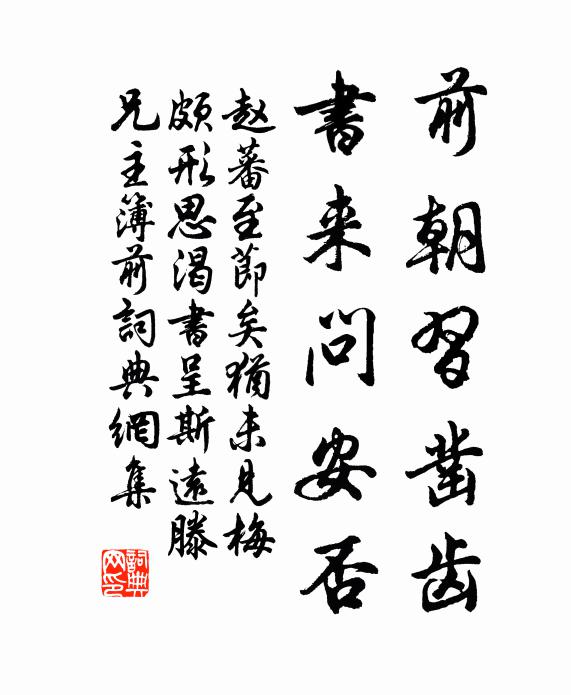 前朝習凿齿
書来問安否
赵蕃至節矣猶未見梅
頗形思渴書呈斯遠滕
兄主簿前詞典網集
詞典网印